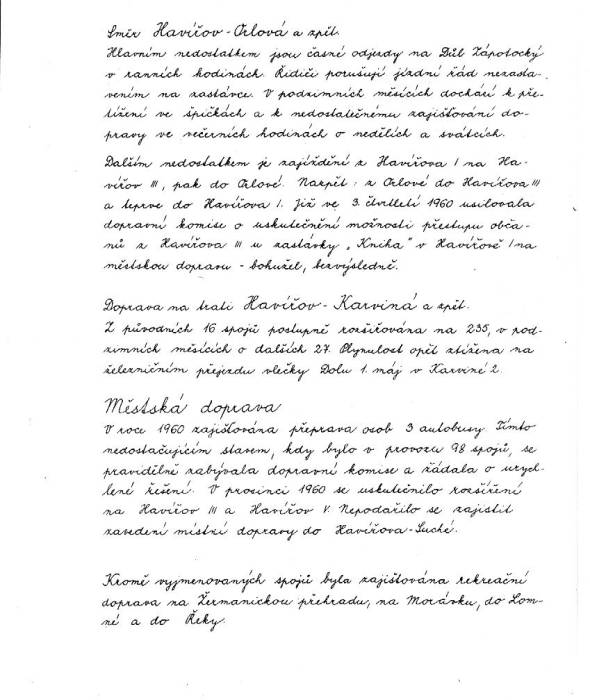 Směr Havířov-Orlová a zpět.
Hlavním nedostatkem jsou časné odjezdy na Důl Zápotocký
v ranních hodinách. Řidiči porušují jízdní řád nezasta-
vením na zastávce. V podzimních měsících dochází k pře-
tížení ve špičkách a k nedostatečnému zajišťování do-
pravy ve večerních hodinách o nedělích a svátcích.
Dalším nedostatkem je zajíždění z Havířova I na Ha-
vířov III, pak do Orlové. Nazpět: z Orlové do Havířova III
a teprve do Havířova I. Již ve 3. čtvrtletí 1960 usilovala
dopravní komise o uskutečnění možnosti přestupu obča-
nů z Havířova III u zastávky „Kniha" v Havířově I na
městskou dopravu - bohužel, bezvýsledně.
Doprava na trati Havířov-Karviná a zpět.
Z původních 16 spojů postupně rozšiřována na 235, v pod-
zimních měsících o dalších 27. Plynulost opět ztížena na
železničním přejezdu vlečky Dolu 1. máj v Karviné 2.
Městská doprava
V roce 1960 zajišťována přeprava osob 3 autobusy. Tímto
nedostačujícím stavem, kdy bylo v provozu 98 spojů, se
pravidělně zabývala dopravní komise a žádala o urych-
lené řešení. V prosinci 1960 se uskutečnilo rozšíření
na Havířov III a Havířov V. Nepodařilo se zajistit
zavedení místní dopravy do Havířova-Suché.
Kromě vyjmenovaných spojů byla zajišťována rekreační
doprava na Žermanickou přehradu, na Morávku, do Lom-
né a do Řeky.